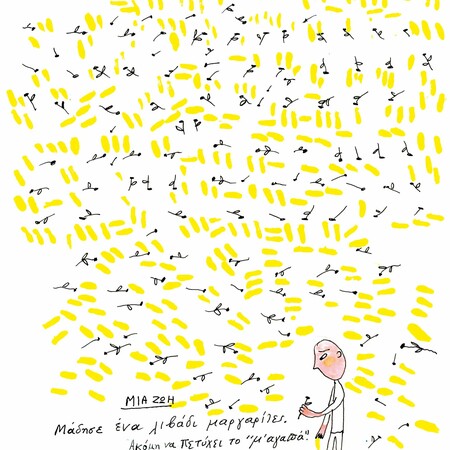 ΜΙΑ ΖΩΗ
Μάδησε ένα λιβάδι μαργαρίτες.
Ακόμη να πετύχει το "μ'αγαπά".